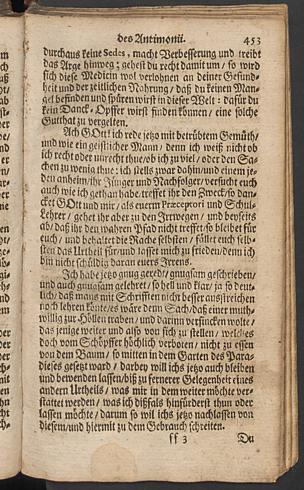 des Antimonii. 453
durchaus keine Sedes, macht Verbesserung und treibt
das Arge hinweg; gehest du recht damit um, so wird
sich diese Medicin wol verlohnen an deiner Gesund-
heit und der zeitlichen Nahrung, daß du keinen Man-
gel befinden und spüren wirst in dieser Welt: dafür du
kein Danck-Opffer wirst finden können, eine solche
Gutthat zu vergelten.
Ach GOtt! ich rede jetzo mit betrübtem Gemüth/
und wie ein geistlicher Mann/ denn ich weiß nicht ob
ich recht oder unrecht thue/ ob ich zu viel/ oder den Sa-
chen zu wenig thue: ich stells zwar dahin/ und einem je-
den anheim/ ihr Jünger und Nachfolger/ versucht euch
auch/ wie ich gethan habe/ trefft ihr den Zweck/ so dan-
cket GOtt und mir/ als euerm Præceptori und Schul-
Lehrer/ gehet ihr aber zu den Irrwegen/ und beyseits
ab/ daß ihr den wahren Pfad nicht treffet/ so bleibet für
euch/ und behaltet die Rache selbsten/ fället euch selb-
sten das Urtheil für/ und lasset mich zu frieden/ denn ich
bin nicht schuldig daran eures Irrens.
Ich habe jetzo gnug geredt/ gnugsam geschrieben/
und auch gnugsam gelehret/ so hell und klar/ ja so deut-
lich/ daß mans mit Schrifften nicht besser ausstreichen
noch lehren könte/ es wäre denn Sach/ daß einer muth-
willig zur Höllen traben/ und darinn versincken wolte/
das jenige weiter und also von sich zu stellen/ welches
doch vom Schöpffer höchlich verboten/ nicht zu essen
von dem Baum/ so mitten in dem Garten des Para-
dieses gesetzt ward/ darbey will ichs jetzo auch bleiben
und bewenden lassen/ biß zu fernerer Gelegenheit eines
andern Urtheils/ was mir in dem weiter möchte ver-
stattet werden/ was ich dißfals hinfürderst thun oder
lassen möchte/ darum so wil ichs jetzo nachlassen von
diesem/ und hiermit zu dem Gebrauch schreiten.
ff 3 Du